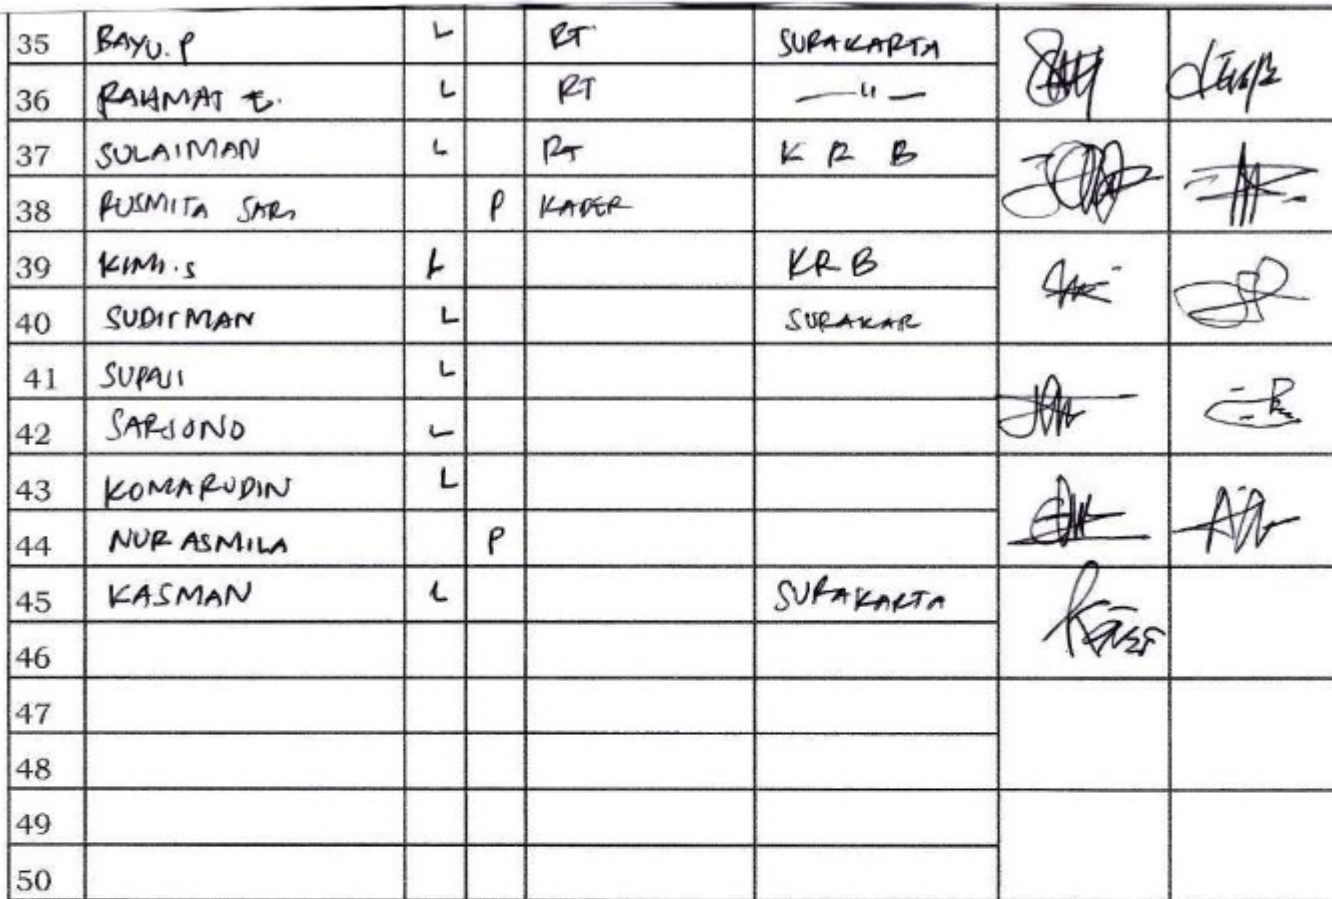 35 BAYU.P L RT SURAKARTA
36 RAHMAT E. L RT —"—
37 SULAIMAN L RT K R B
38 RUSMITA SARI P KADER
39 KIMI.S L KRB
40 SUDIRMAN L SURAKAR
41 SUPAJI L
42 SARJONO L
43 KOMARUDIN L
44 NUR ASMILA P
45 KASMAN L SURAKARTA
46
47
48
49
50